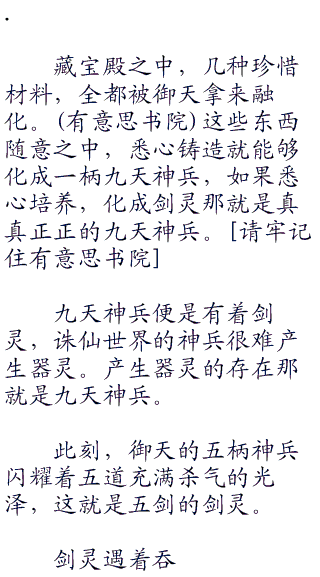 .
藏宝殿之中，几种珍惜
材料，全都被御天拿来融
化。(有意思书院)这些东西
随意之中，悉心铸造就能够
化成一柄九天神兵，如果悉
心培养，化成剑灵那就是真
真正正的九天神兵。[请牢记
住有意思书院]
九天神兵便是有着剑
灵，诛仙世界的神兵很难产
生器灵。产生器灵的存在那
就是九天神兵。
此刻，御天的五柄神兵
闪耀着五道充满杀气的光
泽，这就是五剑的剑灵。
剑灵遇着吞